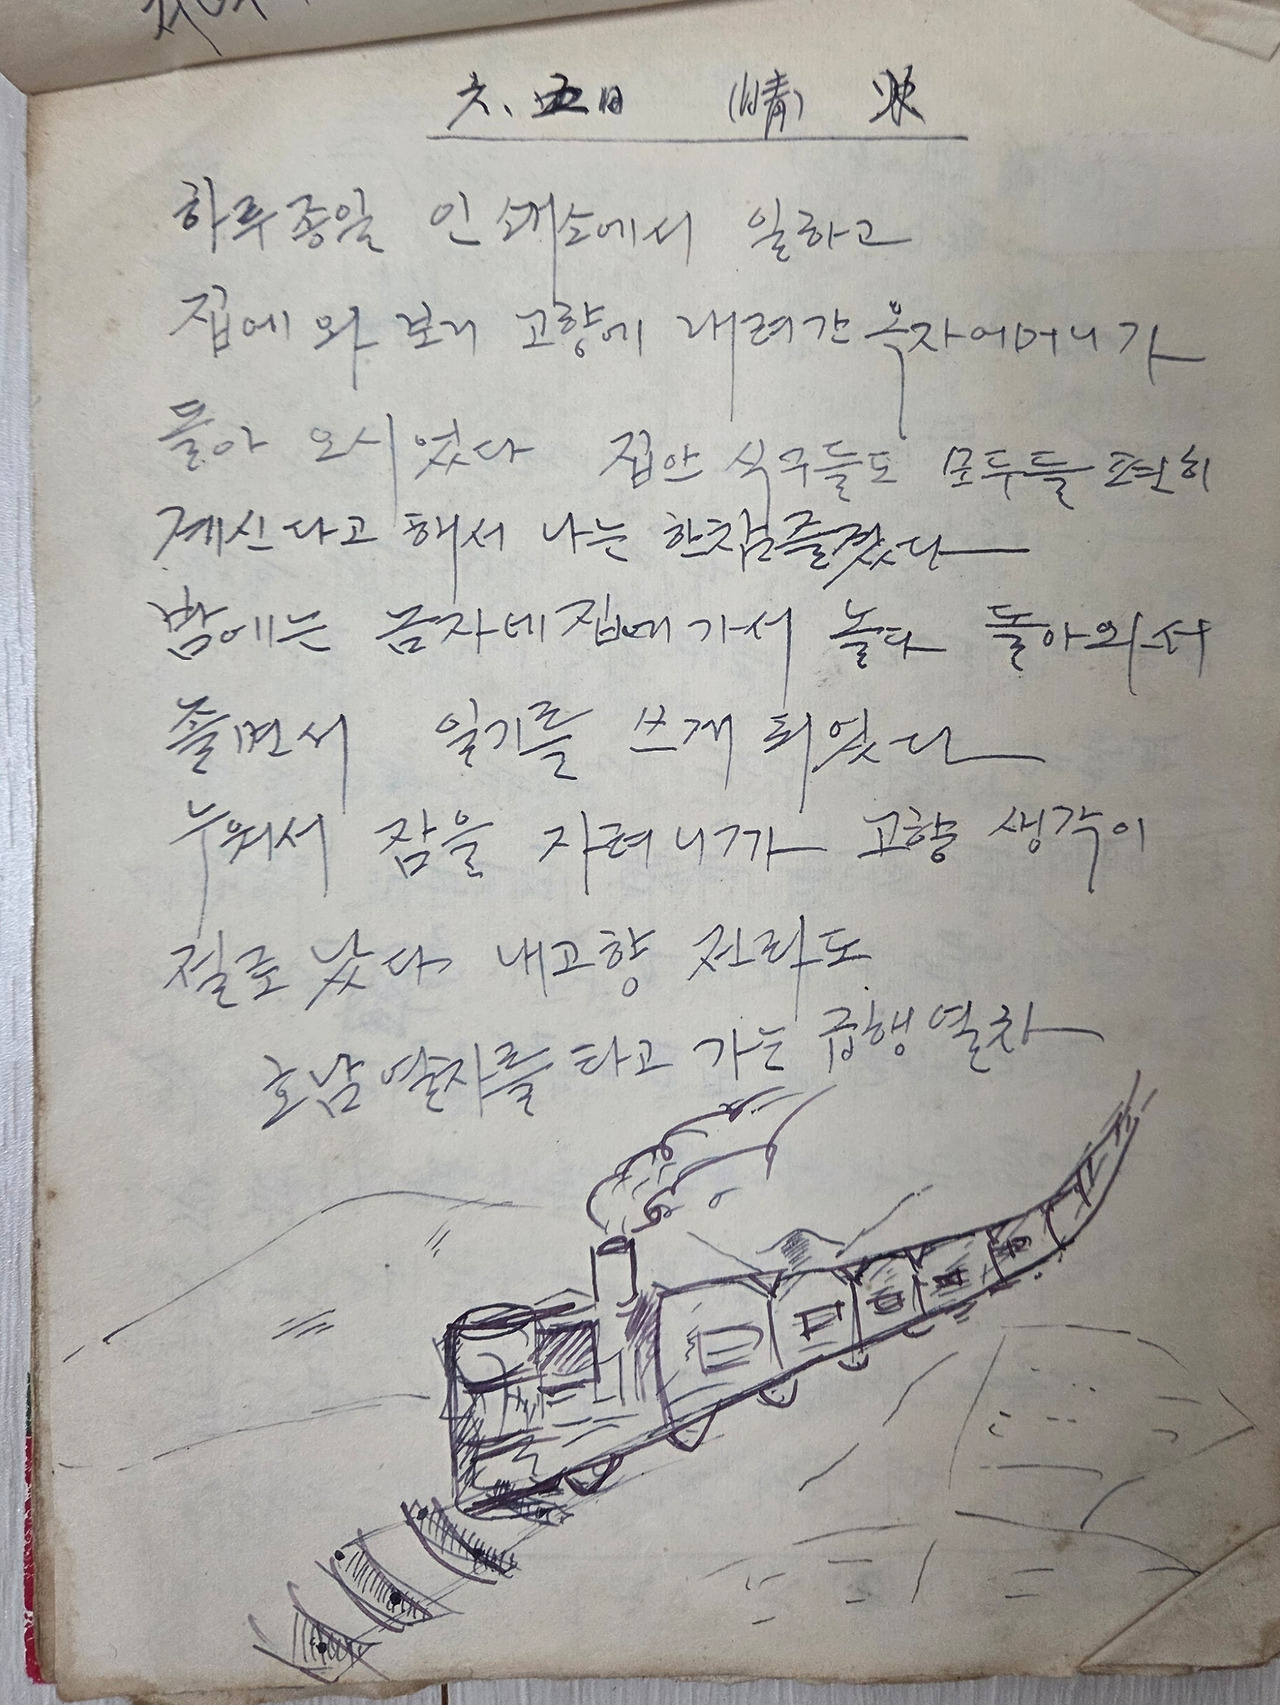 六、五日 (晴) 水
하루종일 인쇄소에서 일하고
집에 와 보니 고향에 내려간 옥자어머니가
돌아 오시었다 집안 식구들도 모두들 편히
계신다고 해서 나는 한참 즐겼다
밤에는 금자네 집에 가서 놀다 돌아와서
졸면서 일기를 쓰게 되었다
누워서 잠을 자려니까 고향 생각이
절로 났다 내고향 전라도
호남열차를 타고 가는 급행열차